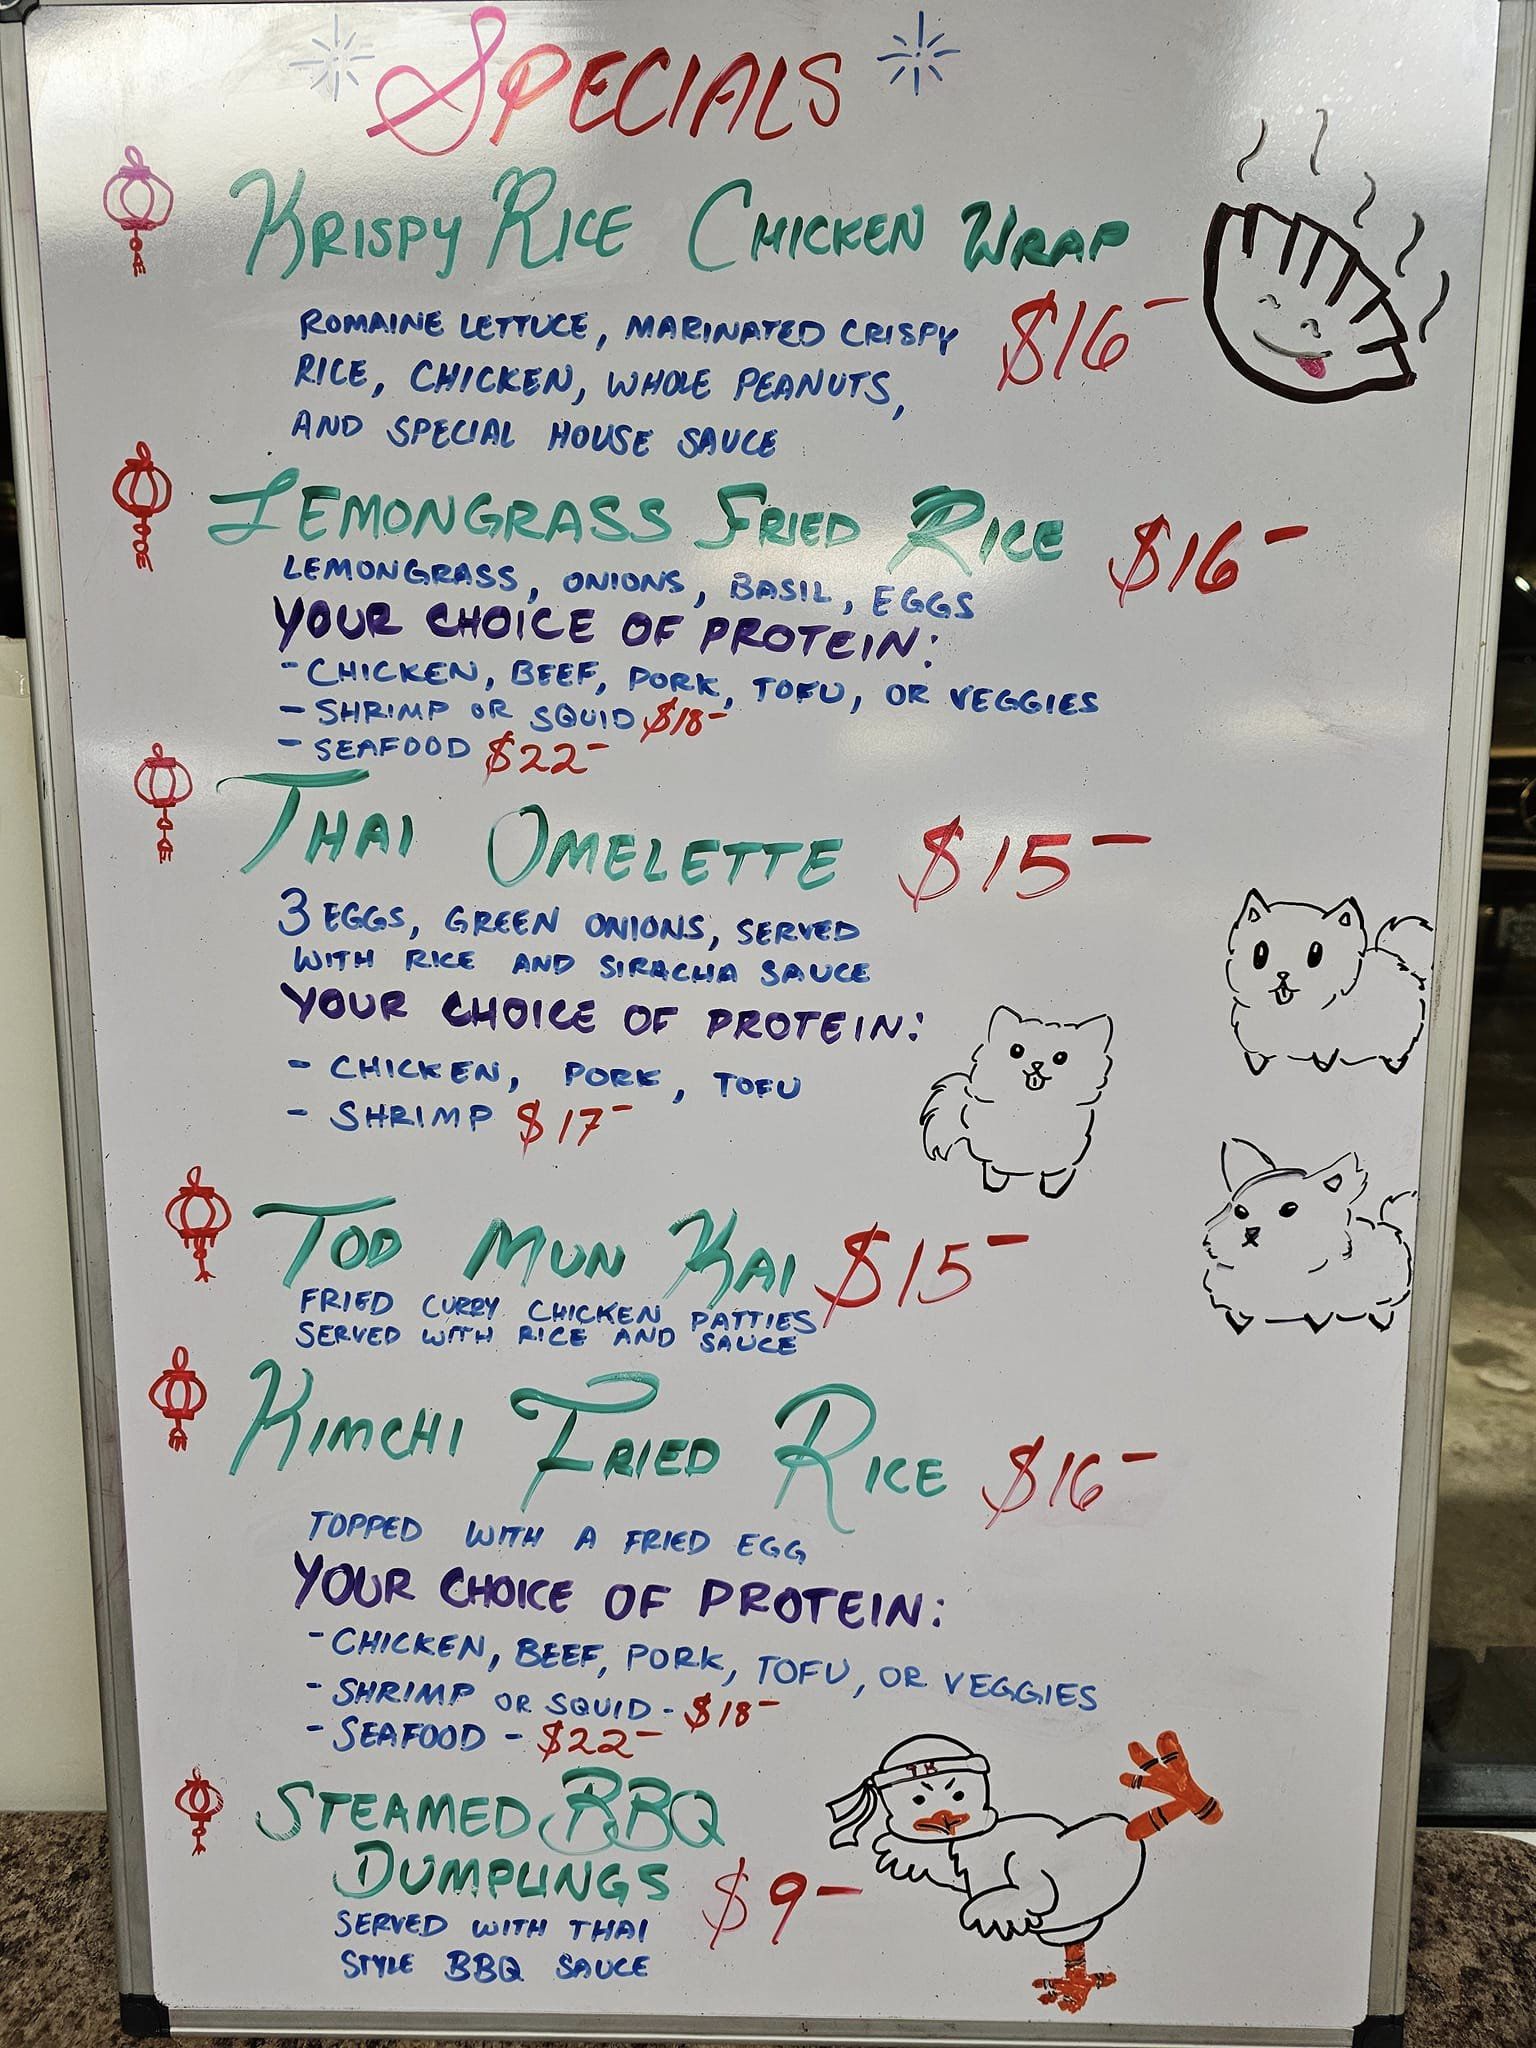 SPECIALS
KRISPY RICE CHICKEN WRAP
ROMAINE LETTUCE, MARINATED CRISPY $16-
RICE, CHICKEN, WHOLE PEANUTS,
AND SPECIAL HOUSE SAUCE
LEMONGRASS FRIED RICE $16-
LEMONGRASS, ONIONS, BASIL, EGGS
YOUR CHOICE OF PROTEIN:
- CHICKEN, BEEF, PORK, TOFU, OR VEGGIES
- SHRIMP OR SQUID $18-
- SEAFOOD $22-
THAI OMELETTE $15-
3 EGGS, GREEN ONIONS, SERVED
WITH RICE AND SIRACHA SAUCE
YOUR CHOICE OF PROTEIN:
- CHICKEN, PORK, TOFU
- SHRIMP $17-
TOD MUN KAI $15-
FRIED CURRY CHICKEN PATTIES
SERVED WITH RICE AND SAUCE
KIMCHI FRIED RICE $16-
TOPPED WITH A FRIED EGG
YOUR CHOICE OF PROTEIN:
- CHICKEN, BEEF, PORK, TOFU, OR VEGGIES
- SHRIMP OR SQUID - $18-
- SEAFOOD - $22-
TK
STEAMED BBQ
DUMPLINGS $9-
SERVED WITH THAI
STYLE BBQ SAUCE